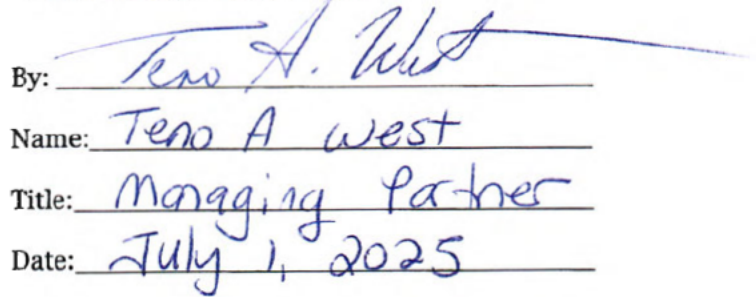 By: Teno A. West
Name: Teno A west
Title: Managing Partner
Date: July 1, 2025